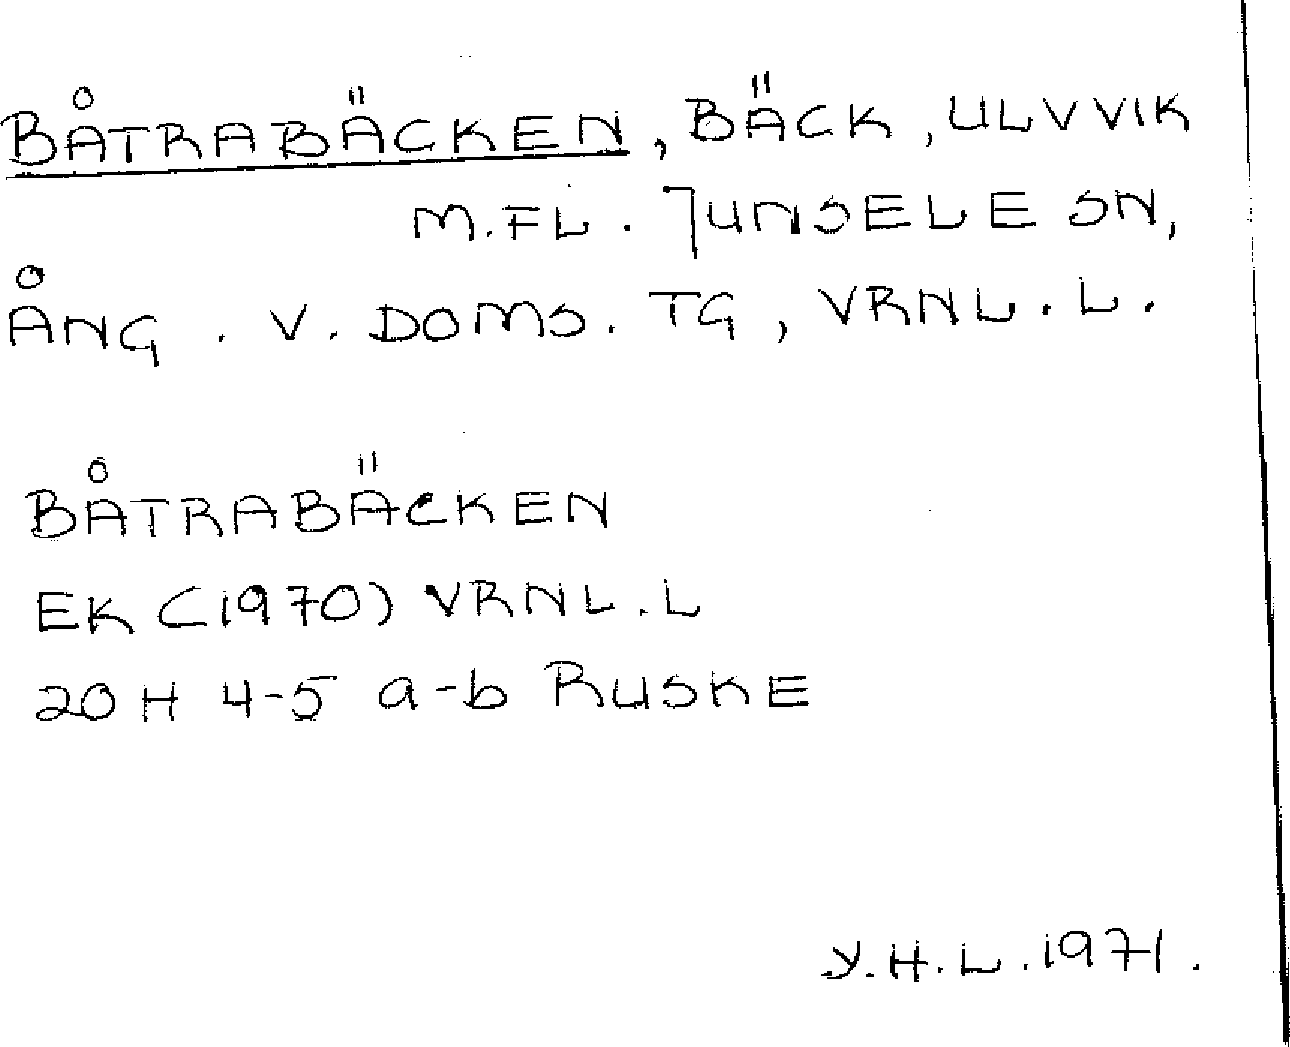 BÅTRABÄCKEN, BÄCK, ULVVIK
M.FL. JUNSELE SN,
ÅNG. V. DOMS. TG, VRNL.L.
BÅTRABÄCKEN
EK (1970) VRNL.L
20 H 4-5 a-b RUSKE
Y.H.L.1971.